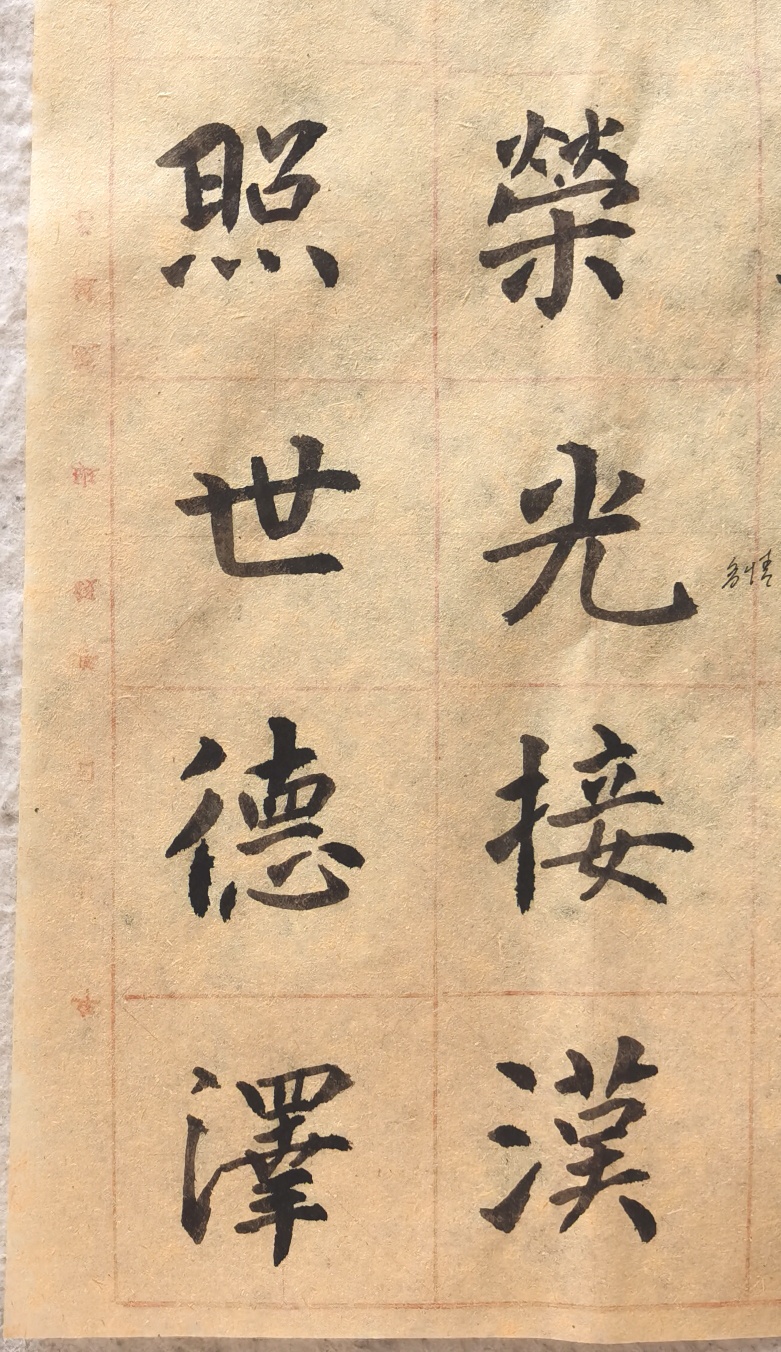 榮光接漢
照世德澤